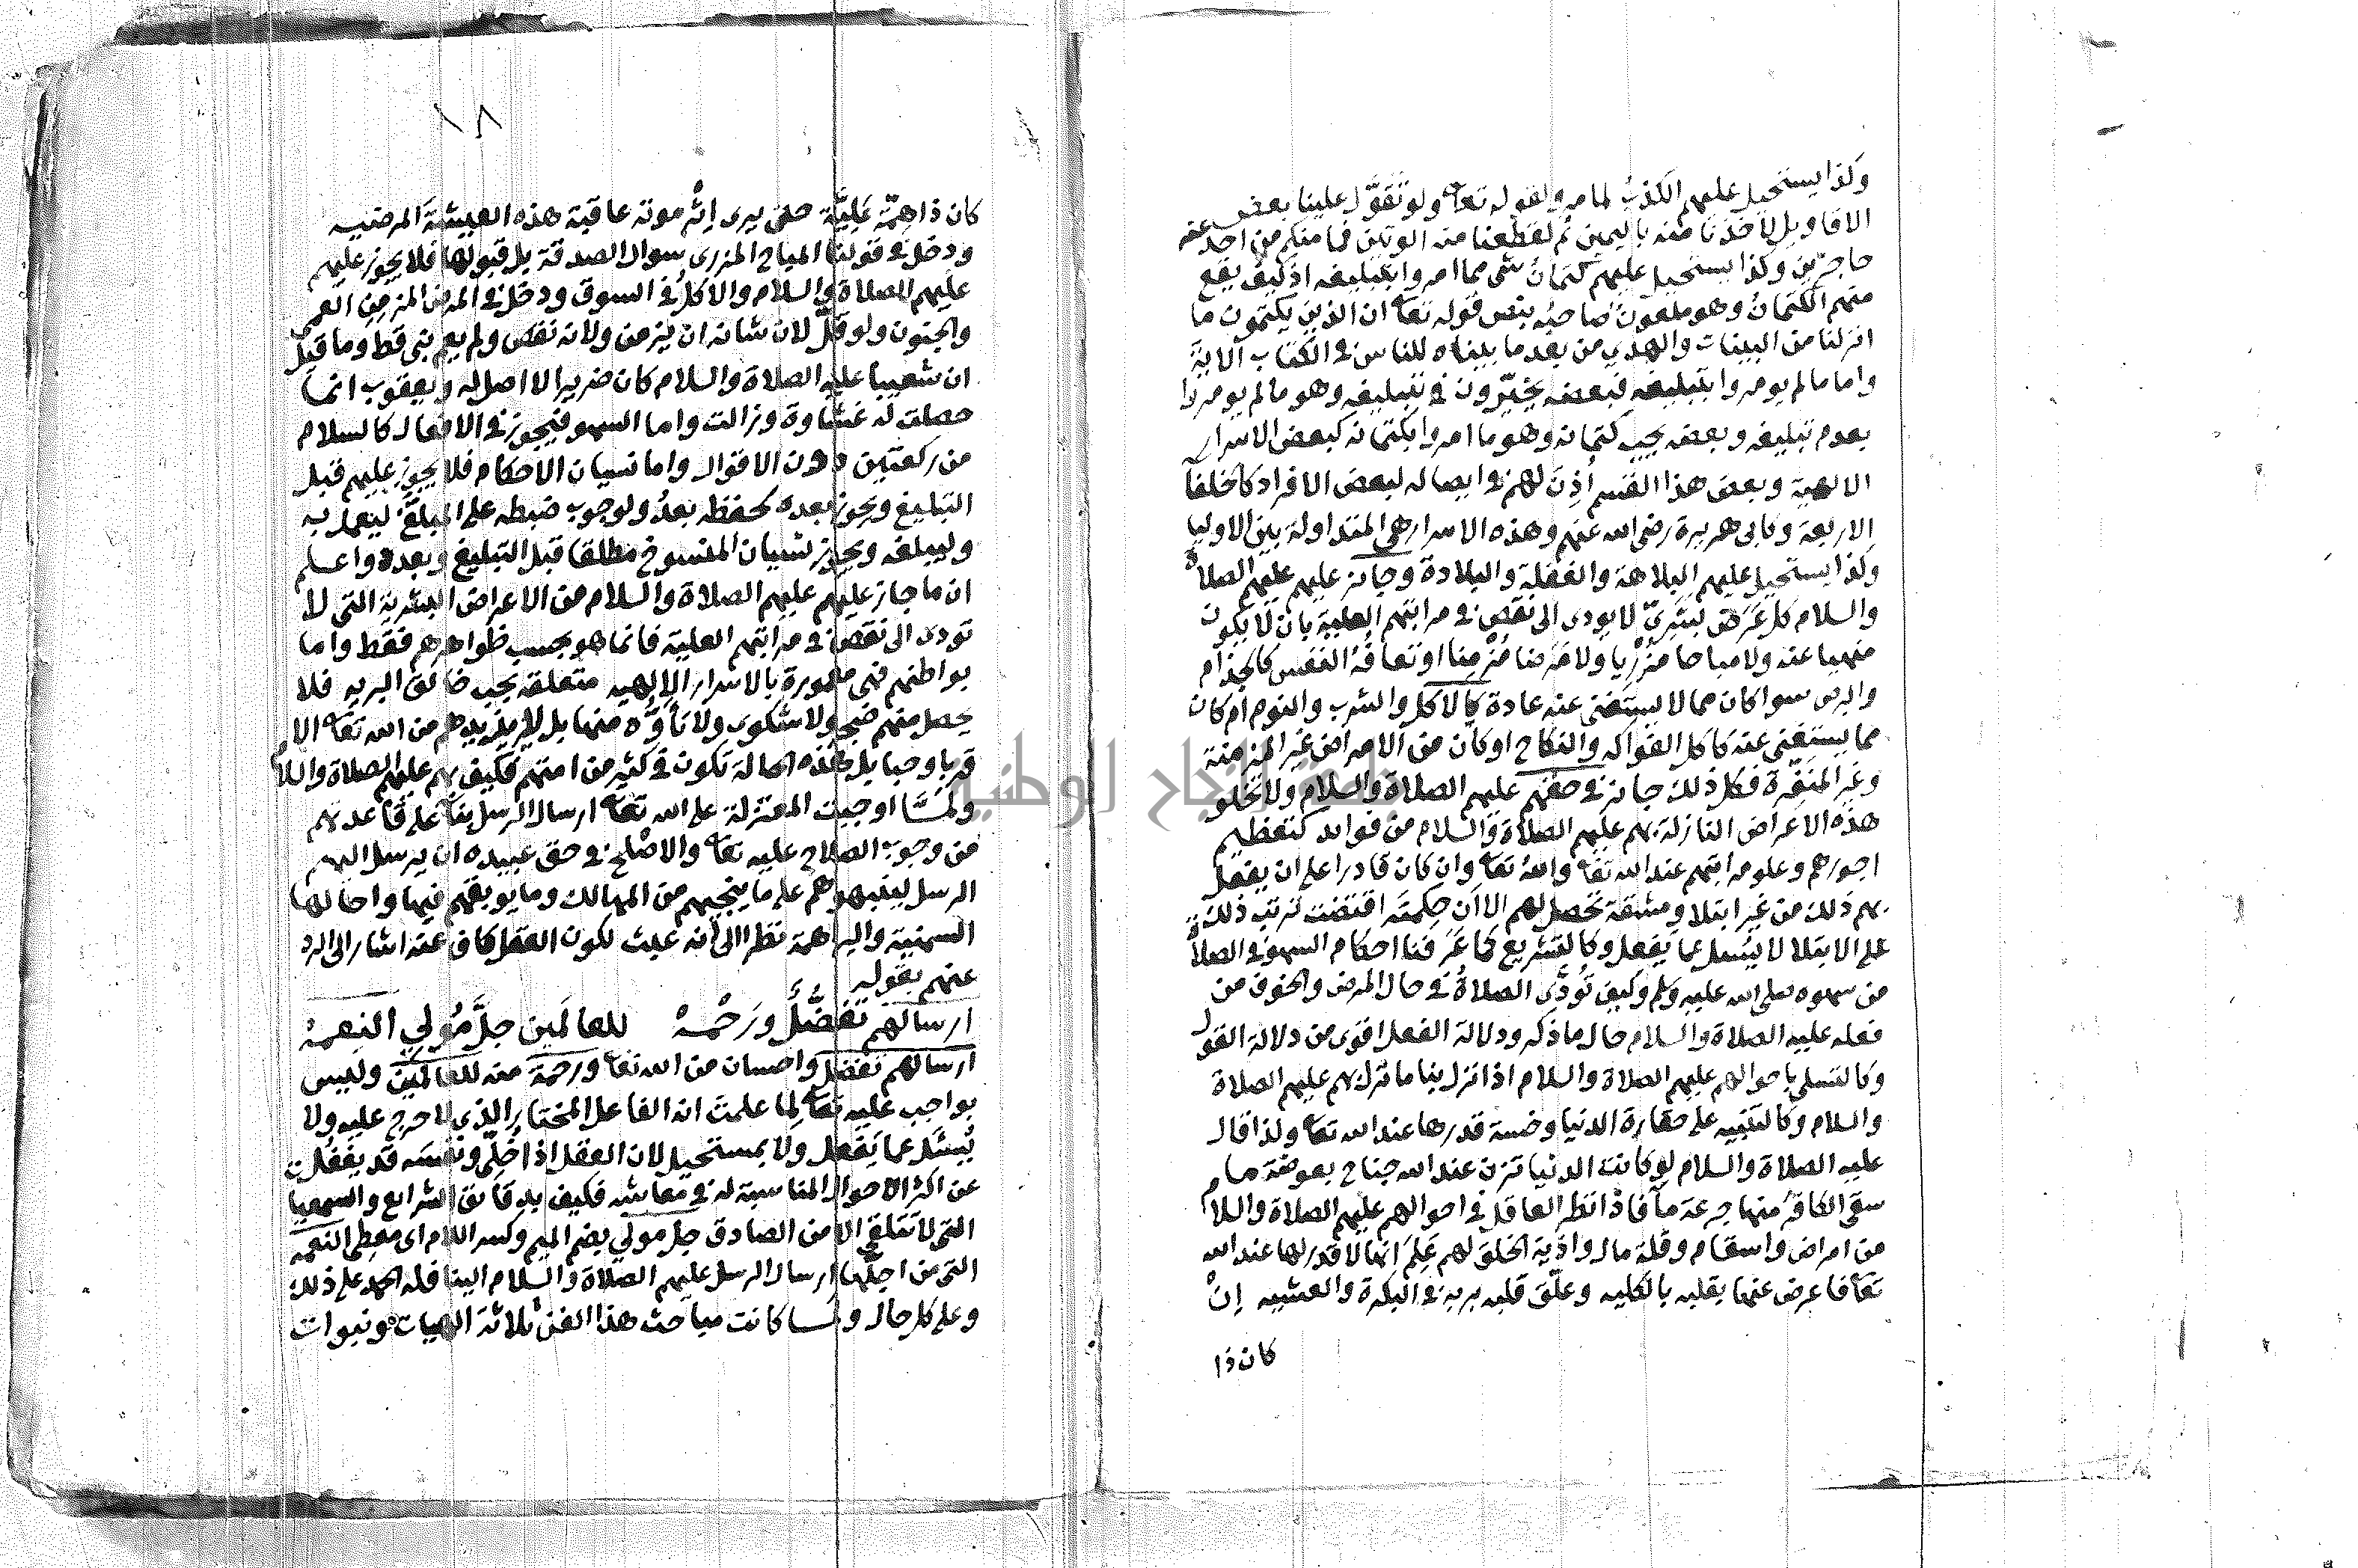 وكذا يستحيل عليهم الكذبُ لما مر ولقوله تعا ولو تقوّل علينا بعض
الاقاويل لاخذنا منه باليمين ثم لقطعنا منه الوتين فما منكم من احد عنه
حاجزين وكذا يستحيل عليهم كتمانُ شى مما امروا بتبليغه اذ كيف يقع
منهم الكتمانُ وهو ملعون صاحبُه بنص قوله تعا ان الذين يكتمون ما
انزلنا من البينات والهدى من بعد ما بيناه للناس فى الكتاب الاية
واما ما لم يومروا بتبليغه فبعضه يخيّرون فى تبليغه وهو ما لم يومروا
بعدم تبليغه وبعضه يجب كتمانه وهو ما امروا بكتمانه كبعض الاسرار
الالهية وبعض هذا القسم أُذِنَ لهم فى ايصاله لبعض الافراد كالخلفا
الاربعة وكابى هريرة رضى الله عنهم وهذه الاسرار هى المتداولة بين الاوليا
وكذا يستحيل عليهم البلاهة والغفلة والبلادة وجائز عليهم عليهم الصلاة
والسلام كل عَرَض بشريّ لا يودى الى نقص فى مراتبهم العلية بان لا يكون
منهيا عنه ولا مباحا مُزْرِيا ولا مَرَضا مُزْمِنا او تعافُهُ النفس كالجذام
والبرص سوا كان مما لا يستغنى عنه عادة كالاكل والشرب والنوم ام كان
مما يستغنى عنه كاكل الفواكه والنكاح او كان من الامراض غير المزمنة
وغير المنفّرة فكل ذلك جائز فى حقهم عليهم الصلاة والسلام ولا تخلو
هذه الاعراض النازلة بهم عليهم الصلاة والسلام من فوايد كتعظيم
اجورهم وعلو مراتبهم عند الله تعا واللهُ تعا وان كان قادرا على ان يفعل
بهم ذلك من غير ابتلا ومشقة تحصل لهم الا ان حكمته اقتضت ترتب ذلك
على الابتلا لا يُسئل عما يفعل وكالتشريع كما عَرَفنا احكام السهو فى الصلاة
من سهوه صلى الله عليه وسلم وكيف تُودَّى الصلاةُ فى حال المرض والخوف من
فعله عليه الصلاة والسلام حال ما ذكر ودلالة الفعل اقوى من دلالة القول
وكالتسلى باحوالهم عليهم الصلاة والسلام اذا نزل بنا ما نزل بهم عليهم الصلاة
والسلام وكالتنبيه على حقارة الدنيا وخسة قدرها عند الله تعا ولذا قال
عليه الصلاة والسلام لو كانت الدنيا تزن عند الله جناح بعوضة ما
سقى الكافرَ منها جرعة ما فاذا نظر العاقل فى احوالهم عليهم الصلاة والسلام
من امراض واسقام وقلة مال واذية الخلق لهم عَلِمَ انها لا قدر لها عند الله
تعا فاعرض عنها بقلبه بالكليه وعلّق قلبه بربه فى البكرة والعشيه إنْ
كان ذا
١٨
كان ذا هِمّة عَلِيَّة حتى يرى إثْر موته عاقبة هذه العيشةَ المرضيه
ودخل فى قولنا المباح المزرى سوال الصدقة بل قبولها فلا يجوز عليهم
عليهم الصلاة والسلام والاكلُ فى السوق ودخل فى المرض المزمن العمى
والجنون ولو قلّ لان شانه ان يزمن ولانه نقص ولم يعم نبى قط وما قيل
ان شعيبا عليه الصلاة والسلام كان ضريرا لا اصل له ويعقوب انما
حصلت له غشاوة وزالت واما السهو فيجوز فى الافعال كالسلام
من ركعتين دون الاقوال واما نسيان الاحكام فلا يجوز عليهم قبل
التبليغ ويجوز بعده لحفظه بعدُ ولوجوب ضبطه على المبلَّغ ليعمل به
وليبلغه ويجوز نسيان المنسوخ مطلقا قبل التبليغ وبعده واعلم
ان ما جاز عليهم عليهم الصلاة والسلام من الاعراض البشرية التى لا
تودى الى نقص فى مراتبهم العلية فانما هو بحسب ظواهرهم فقط واما
بواطنهم فهى معمورة بالاسرار الالهيه متعلقه بحب خالق البريه فلا
يحصل منهم ضجر ولا شكوى ولا تأوُّه منها بل لا يزيدهم من الله تعا الا
قربا وحبا بل هذه الحالة تكون فى كثير من امتهم فكيف بهم عليهم الصلاة والسلام
ولمَّا اوجبت المعتزلة على الله تعا ارسال الرسل بناء على قاعدتهم
من وجوب الصلاح عليه تعا والاصلح فى حق عبيده ان يرسل اليهم
الرسل لينبهوهم على ما ينجيهم من المهالك وما يوبقهم فيها واحالها
السمنية والبراهمة نظرا الى انه عبث لكون العقل كاف عنه اشار الى الرد
عنهم بقوله
ارسالهم تَفَضُّلٌ ورَحْمهْ للعالَمين جلَّ مُولِي النعمهْ
ارسالهم تفضل واحسان من الله تعا ورحمة منه للعالمين وليس
بواجب عليه تعا لِما علمتَ انه الفاعل المختار الذى لا حرج عليه ولا
يُسْئَل عما يَفعل ولا بمستحيل لان العقل اذا خُلِّى ونفسَه قد يغفل
عن اكثر الاحوال المناسبة له فى معاشه فكيف بدقائق الشرايع والسمعيا
التى لا تتلقى الا من الصادق جل مولي بضم الميم وكسر اللام اى معطى النعمه
التى من اجلّها ارسال الرسل عليهم الصلاة والسلام الينا فله الحمد على ذلك
وعلى كل حال ولما كانت مباحث هذا الفن ثلاثة الهيات ونبوات